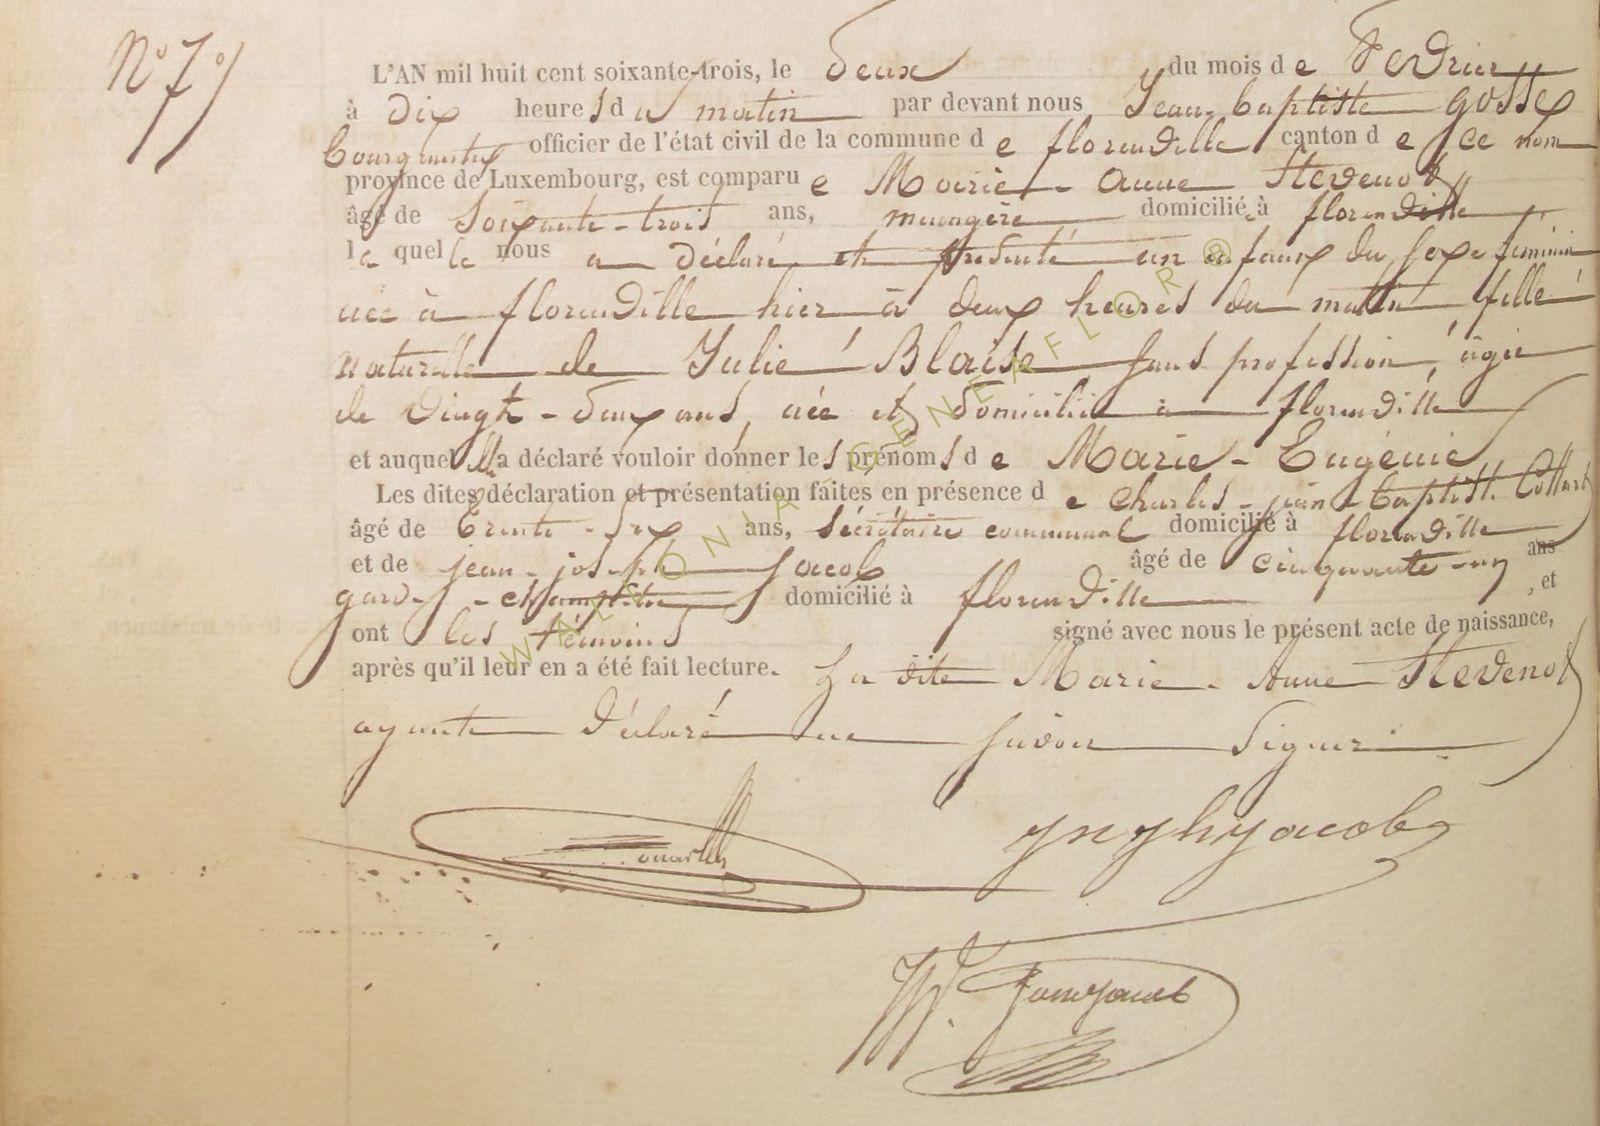 N° 7
L'AN mil huit cent soixante-trois, le deux du mois de Fevrier
à dix heures du matin par devant nous Jean-baptiste gosse
bourgmestre officier de l'état civil de la commune de florenville canton de ce nom
province de Luxembourg, est comparue Marie-Anne Stevenot
âgé de soixante-trois ans, menagère domicilié à florenville
laquelle nous a déclaré et présenté un enfant du sexe féminin
née à florenville hier à deux heures du matin, fille
naturelle de Julie Blaise sans profession, âgée
de vingt-deux ans, née et domiciliée à florenville
et auquel elle a déclaré vouloir donner les prénoms de Marie-Eugénie
Les dites déclaration et présentation faites en présence de charles-jean-baptiste Collard
âgé de trente-six ans, secrétaire communal domicilié à florenville
et de jean-joseph jacob âgé de cinquante-un ans
garde-champêtre domicilié à florenville , et
ont les témoins signé avec nous le présent acte de naissance,
après qu'il leur en a été fait lecture. La dite Marie-Anne Stevenot
ayante déclaré ne savoir signer
jacob
WALLONIA GENEAFLOR®